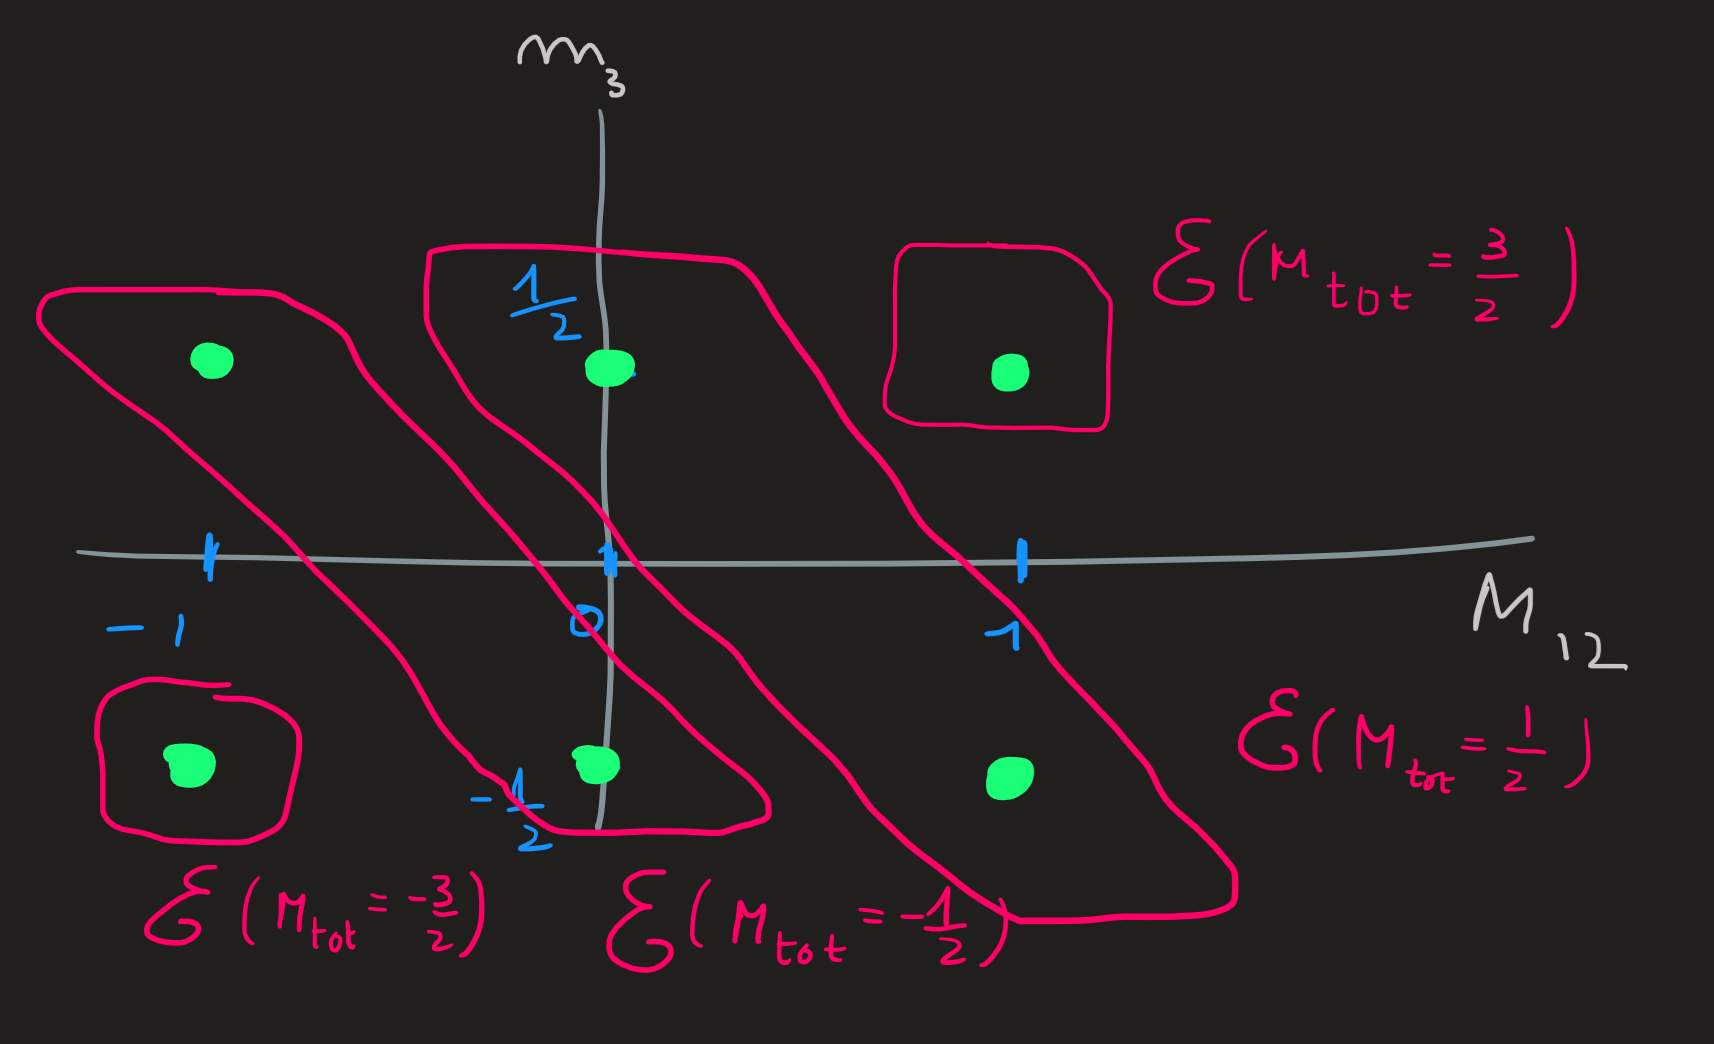 m₃
ℰ(M_tot = 3/2)
1/2
-1
0
-1
M₁₂
ℰ(M_tot = 1/2)
-1/2
ℰ(M_tot = -3/2)
ℰ(M_tot = -1/2)